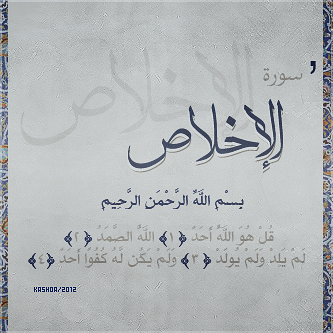 سورة
الإخلاص
بِسْمِ اللَّهِ الرَّحْمَنِ الرَّحِيمِ
قُلْ هُوَ اللَّهُ أَحَدٌ ﴿١﴾ اللَّهُ الصَّمَدُ ﴿٢﴾
لَمْ يَلِدْ وَلَمْ يُولَدْ ﴿٣﴾ وَلَمْ يَكُن لَّهُ كُفُوًا أَحَدٌ ﴿٤﴾
KASHDA/2012